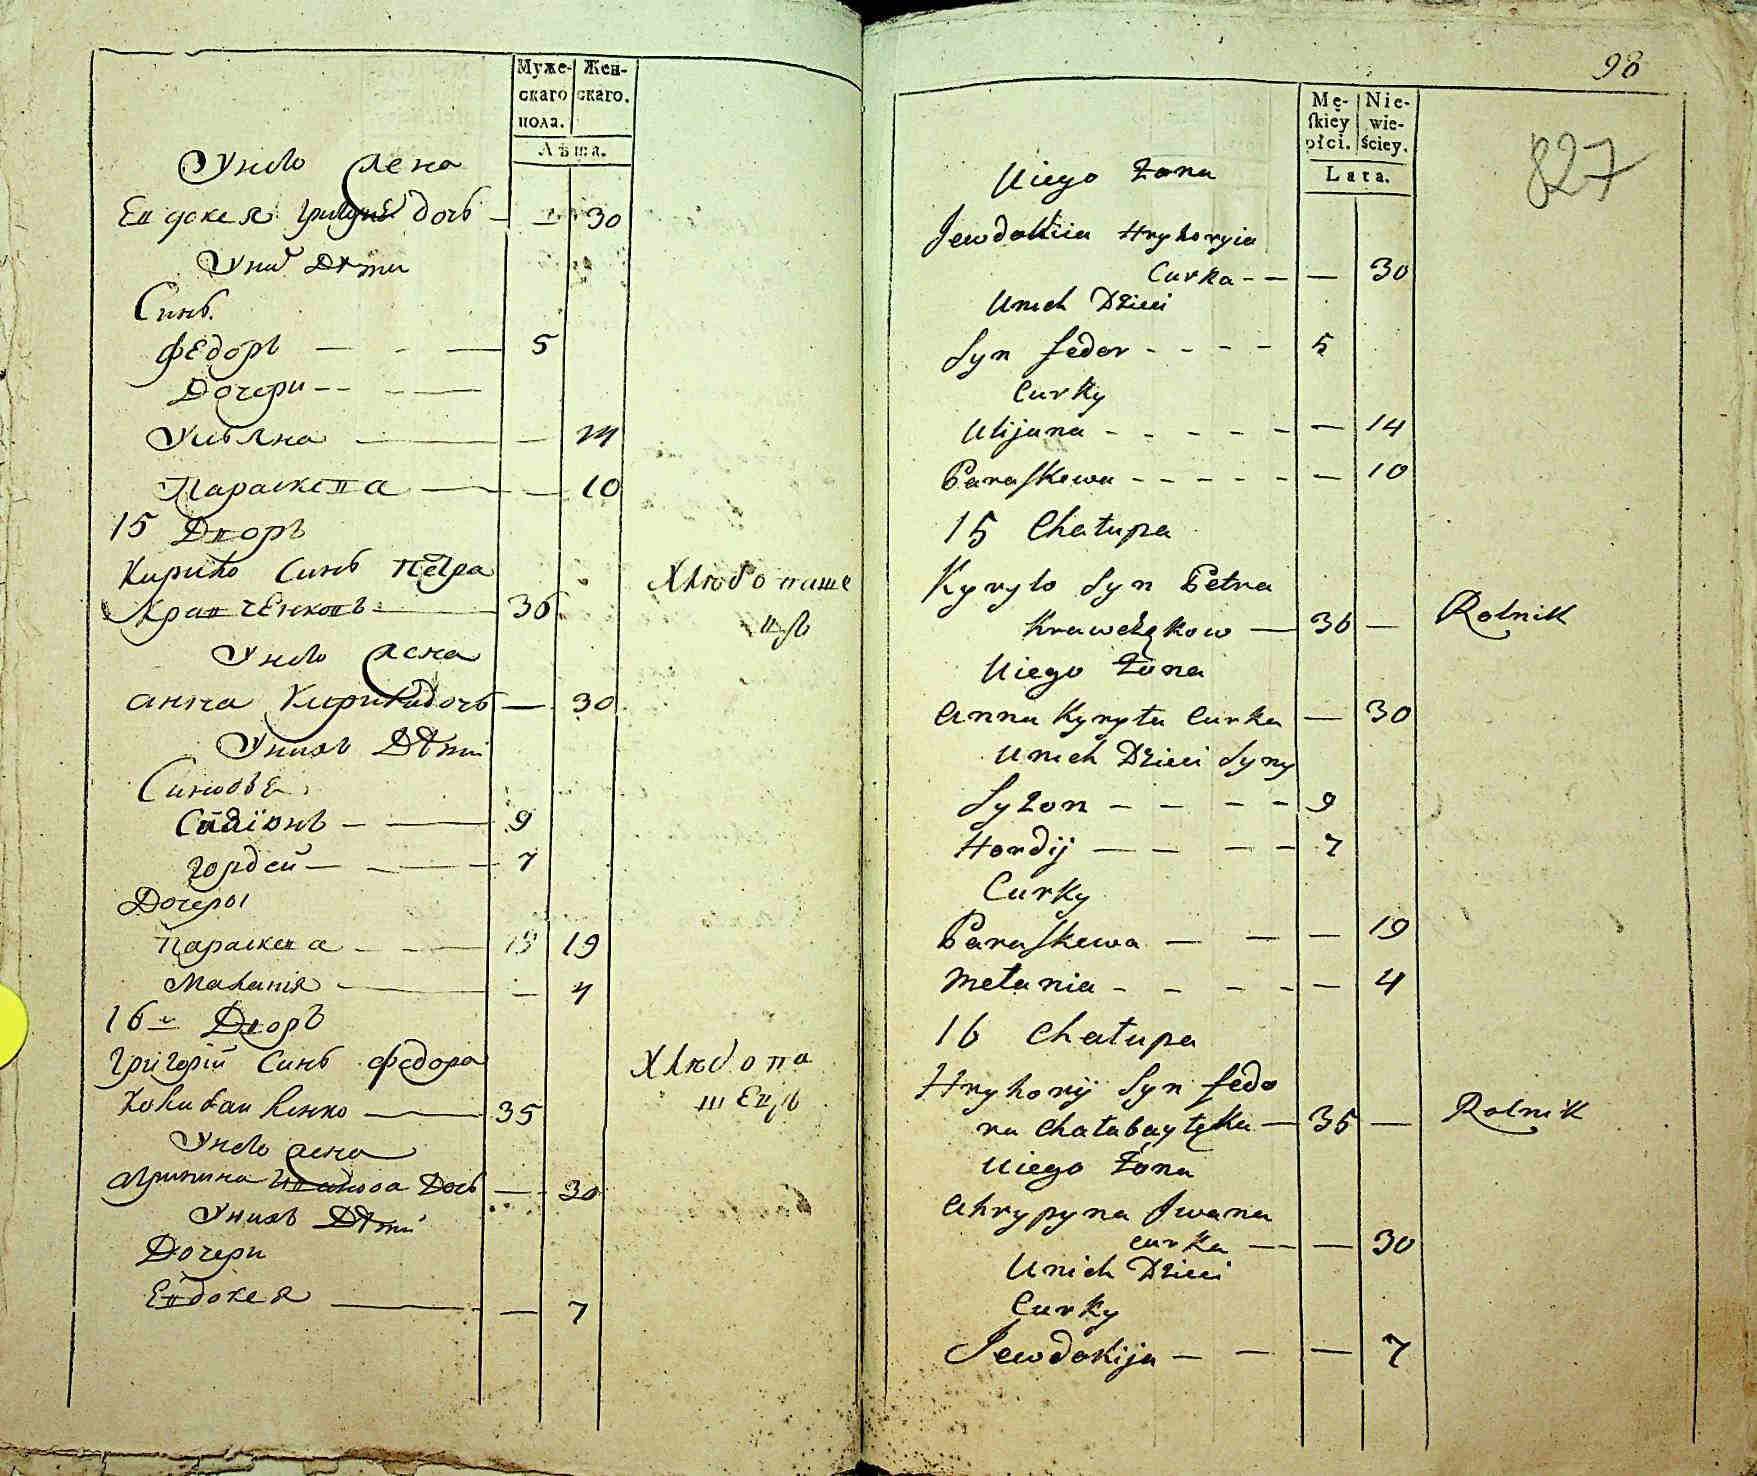 Муже-
скаго
пола.
Жен-
скаго.
Лѣта.
У него жена
Евдокея дочь — — 30
У них Дѣти
Синъ.
Федоръ — - — 5
Дочери -- - —
Ульяна — — 14
Параскева — — 10
15 Дворъ
Кирило Синъ Петра
Кравченковъ — 36
Хлебопаше
цъ
У него жена
Анна Кирила дочь — 30
У нихъ Дѣти
Синове
— — 9
Гордей — - — 7
Дочеры
Параскева - - — 19 19
Малания - — — 4
16й Дворъ
Григорій Синъ Федора
— 35
Хлебопа
шецъ
У него жена
Агрипина Иванова Дочь — - 30
У нихъ Дѣти
Дочери
Евдокея — — 7
98
827
Mę-
ſkiey
płci.
Nie-
wie-
ściey.
Lata.
Uiego Żona
Jewdokiia Hryhoryia
Curka - — — 30
Unich Dzieci
Syn Fedor - - - - 5
Curky
Ulijana - - - - - — 14
Paraſkewa - - - - - — 10
15 Chałupa
Kyryło Syn Petra
Krawczękow — 36 —
Rolnik
Uiego Żona
Anna Kyryła Curka — 30
Unich Dzieci Syny
— - — - 9
Hordij — — - — 7
Curky
Paraſkewa — — — 19
Mełania - - - - — 4
16 Chałupa
Hryhorij Syn Fedo
ra Chałabaytęka — 35 —
Rolnik
Uiego Żona
Ahrypyna Iwana
curka — — — 30
Unich Dzieci
Curky
Jewdokija — — — 7